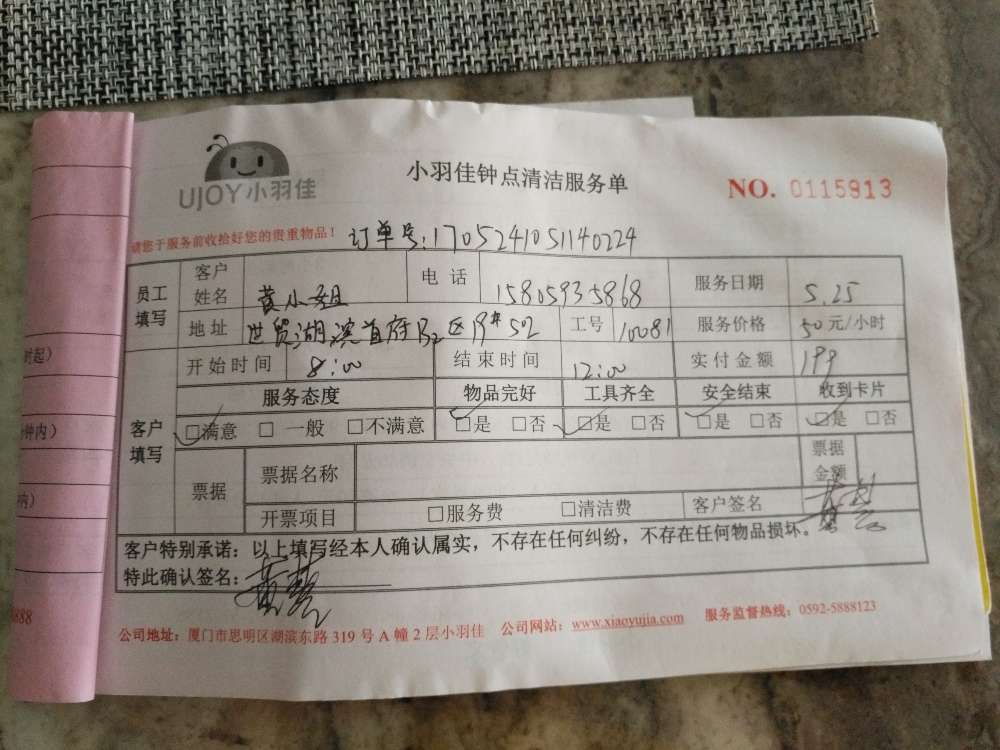 UJOY小羽佳
小羽佳钟点清洁服务单
NO. 0115913
请您于服务前收拾好您的贵重物品！ 订单号:1705241051140224
员工填写 客户姓名 黄小姐 电 话 15805935868 服务日期 5.25
地址 世贸湖滨首府B2区19#502 工号 10081 服务价格 50元/小时
开始时间 8:00 结束时间 12:00 实付金额 199
服务态度 物品完好 工具齐全 安全结束 收到卡片
客户填写 □满意 □ 一般 □不满意 □是 □否 □是 □否 □是 □否 □是 □否
票据 票据名称 票据金额
开票项目 □服务费 □清洁费 客户签名
客户特别承诺：以上填写经本人确认属实，不存在任何纠纷，不存在任何物品损坏。
特此确认签名：
公司地址：厦门市思明区湖滨东路 319 号 A 幢 2 层小羽佳 公司网站：www.xiaoyujia.com 服务监督热线：0592-5888123
时起）
钟内）
内）
888